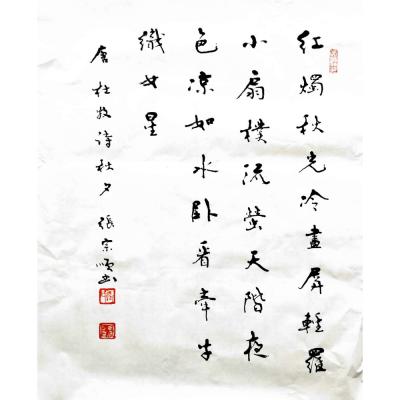 红烛秋光冷画屏轻罗
小扇扑流萤天阶夜
色凉如水卧看牵牛
织女星
唐杜牧诗秋夕张宗顺书